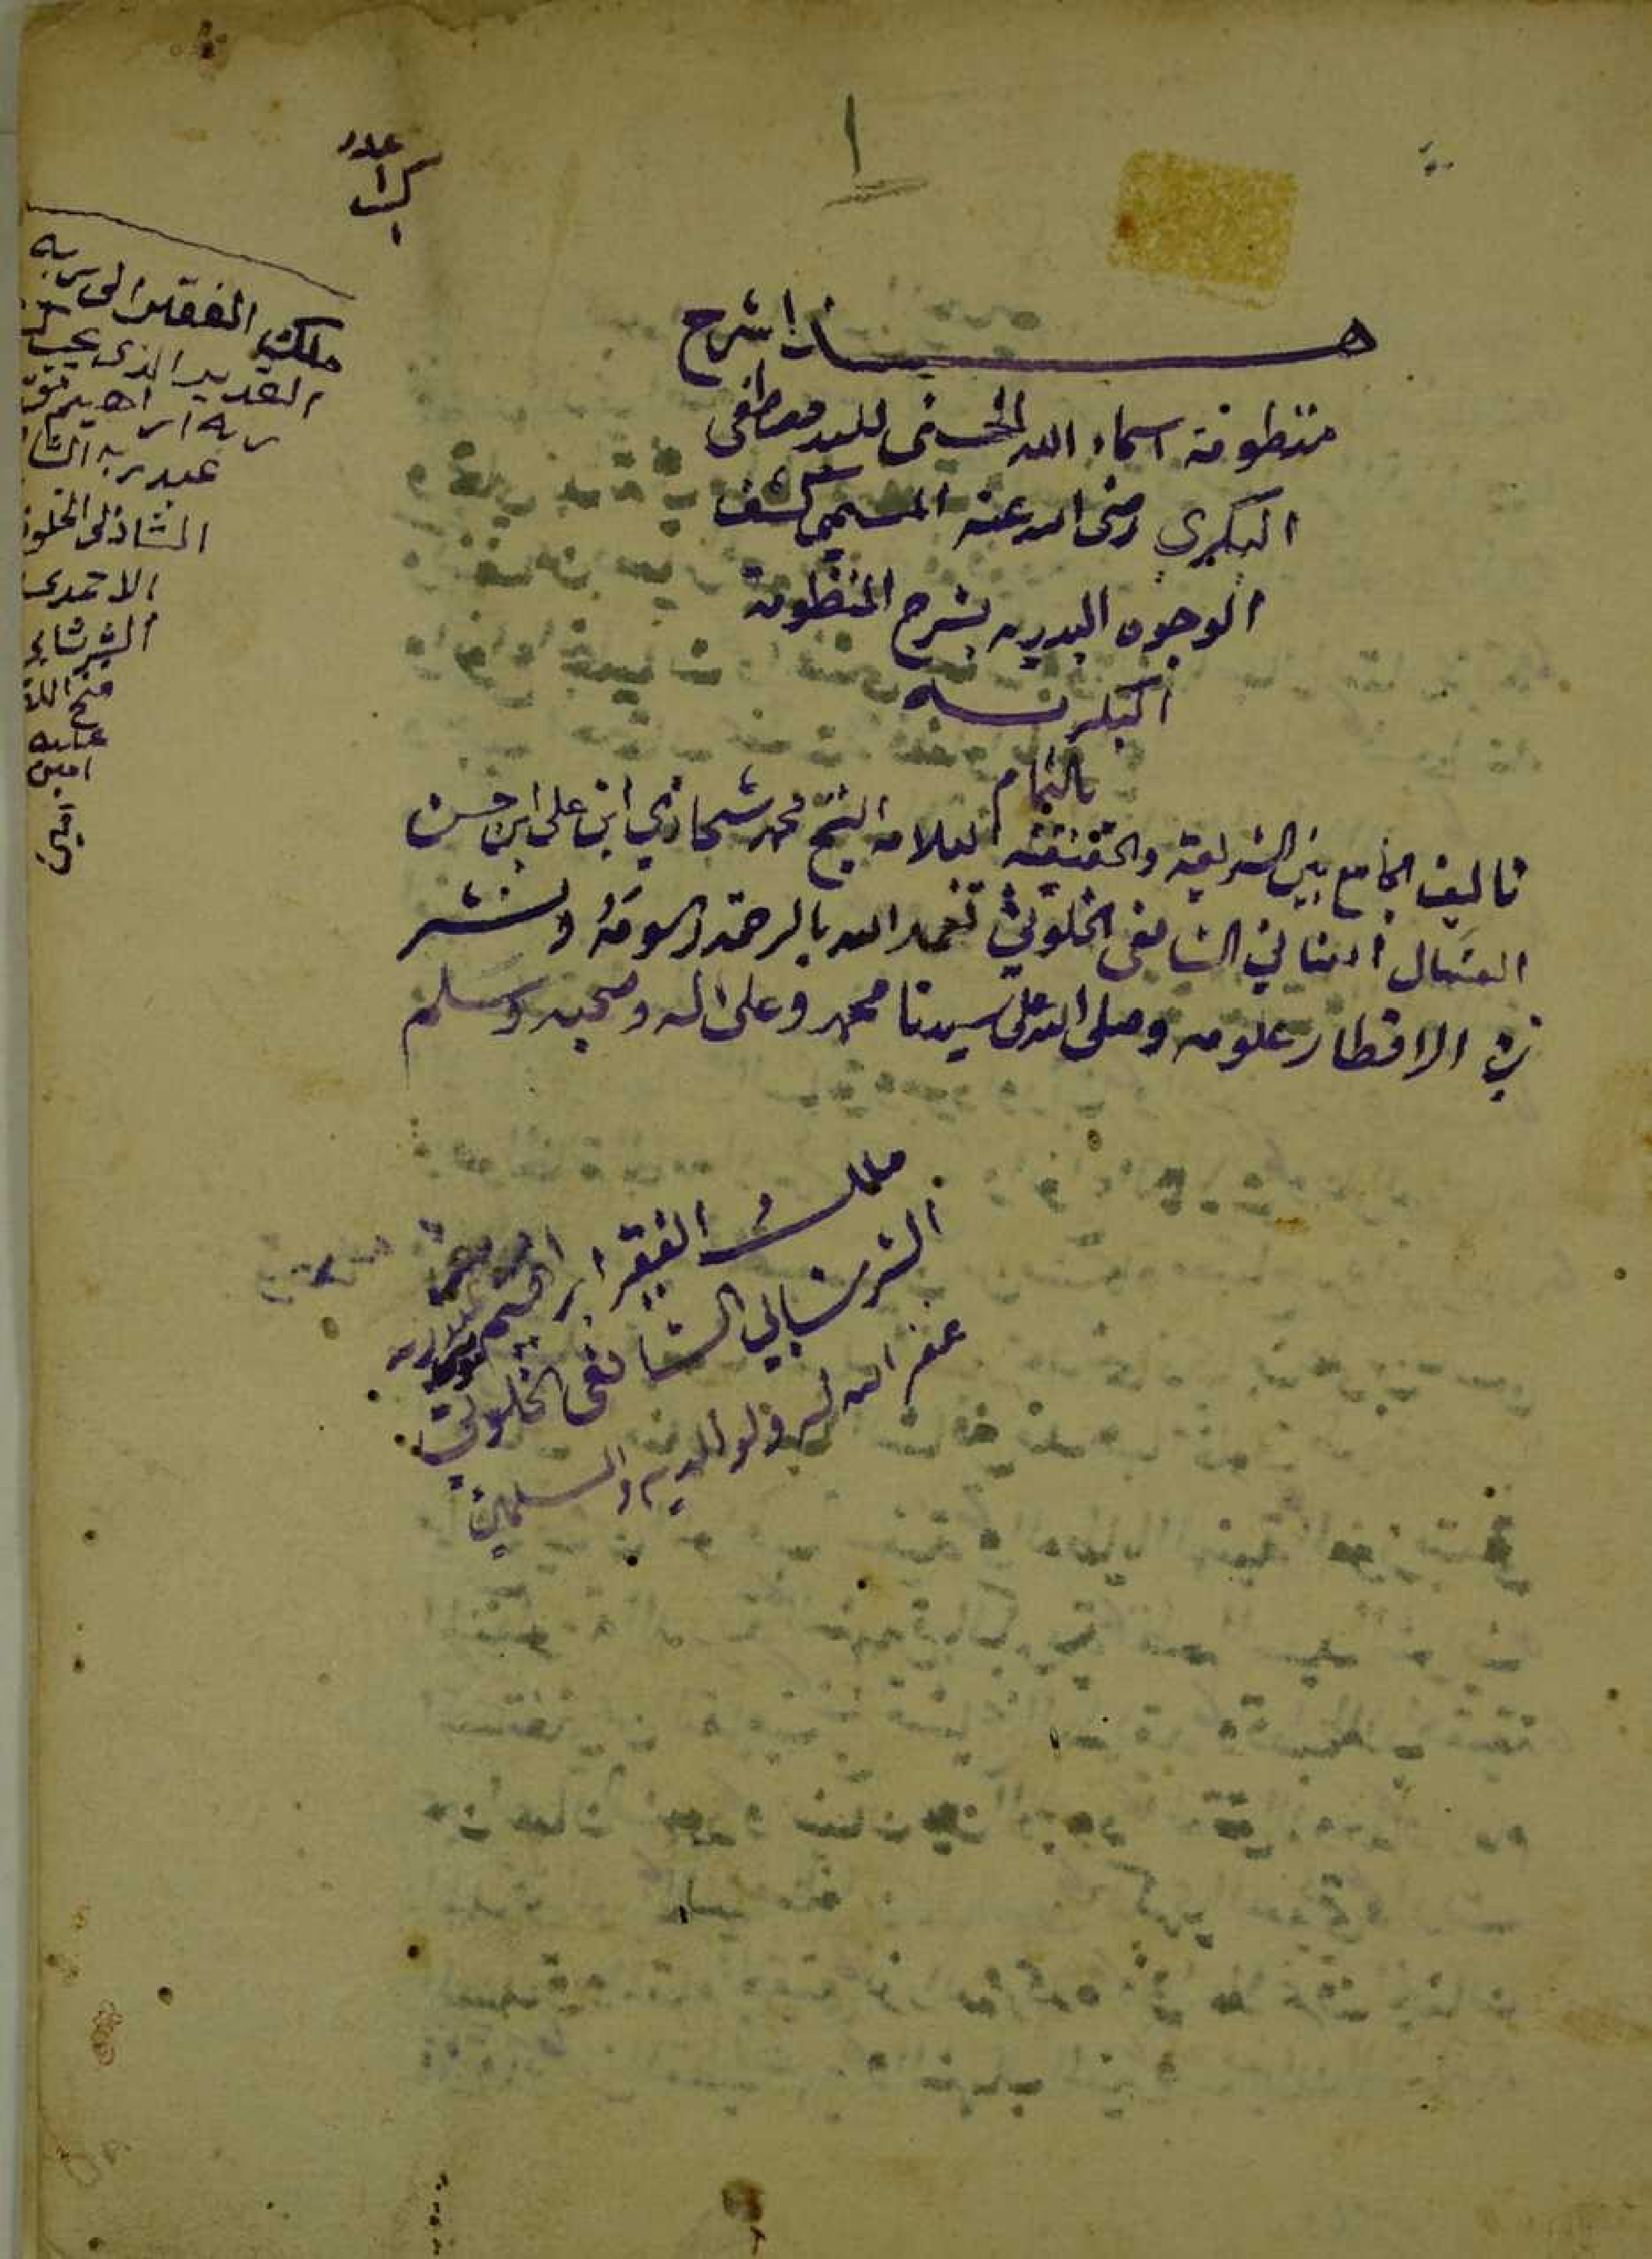 ١
عدد
١
هذا شرح
منظومة اسماء الله الحسنى للسيد مصطفى
البكري رضى الله عنه المسمى كشف
الوجوه البدريه بشرح المنظومة
البكريه
بالتمام
تاليف الجامع بين الشريعة والحقيقة العلامه الشيخ محمد شحاذي ابن على ابن حسن
العسال الشافعى الخلوتي تغمد الله بالرحمة ونشر
في الاقطار علومه وصلى الله على سيدنا محمد وعلى اله وصحبه وسلم
ملك الفقير ابراهيم
الشرشابي الشافعى الخلوتي
غفر الله له ولوالديه والمسلمين
ملك الفقير الى ربه
القدير الذى
ربه ابراهيم
عبد ربه الشا
الشاذلى الخلوت
الاحمدى
الشرشابي
فتح الله
عليه
امين